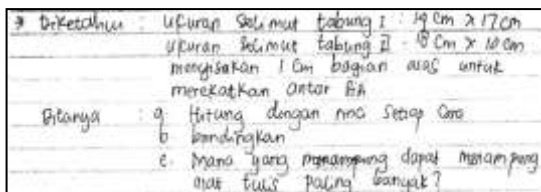 * Diketahui : Ukuran Selimut tabung I : 19 cm x 17 cm
Ukuran Selimut tabung II : 8 cm x 10 cm
menyisakan 1 cm bagian alas untuk
merekatkan antar
Ditanya : a Hitung dengan setiap Cara
b bandingkan
c. Mana yang dapat menampung
alat tulis paling banyak?